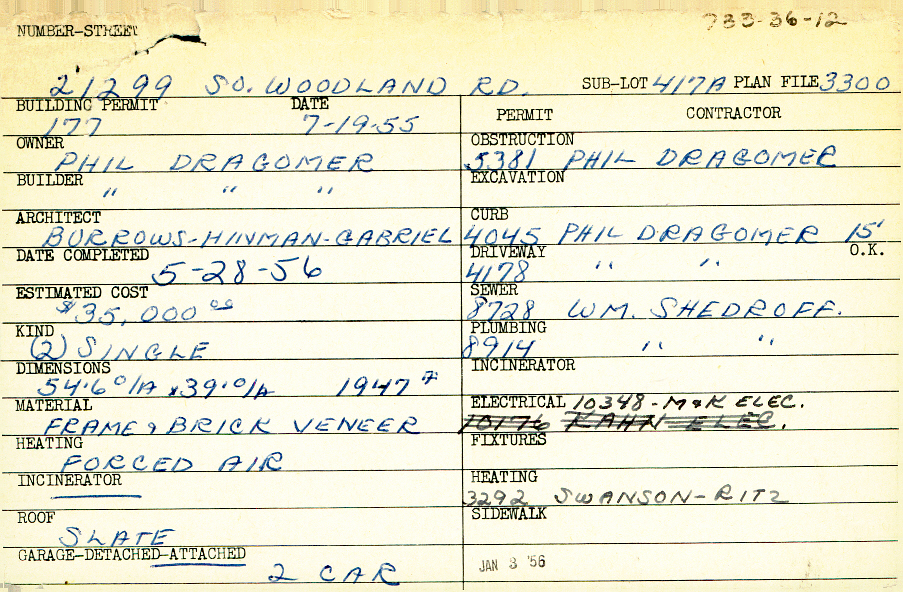 733-36-12
NUMBER-STREET
21299 SO. WOODLAND RD. SUB-LOT 417A PLAN FILE 3300
BUILDING PERMIT DATE
177 7-19-55
OWNER
PHIL DRAGOMER
BUILDER
" " "
ARCHITECT
BURROWS-HINMAN-GABRIEL
DATE COMPLETED
5-28-56
ESTIMATED COST
$35,000 00
KIND
(2) SINGLE
DIMENSIONS
54'6 O/A x39'0/A 1947
MATERIAL
FRAME & BRICK VENEER
HEATING
FORCED AIR
INCINERATOR
ROOF
SLATE
GARAGE-DETACHED-ATTACHED
2 CAR
PERMIT CONTRACTOR
OBSTRUCTION
5381 PHIL DRAGOMER
EXCAVATION
CURB
4045 PHIL DRAGOMER 15'
DRIVEWAY O.K.
4178 " "
SEWER
8728 WM. SHEDROFF.
PLUMBING
8914 " "
INCINERATOR
ELECTRICAL 10348-M&K ELEC.
10176 KAHN ELEC.
FIXTURES
HEATING
3292 SWANSON-RITZ
SIDEWALK
JAN 3 '56